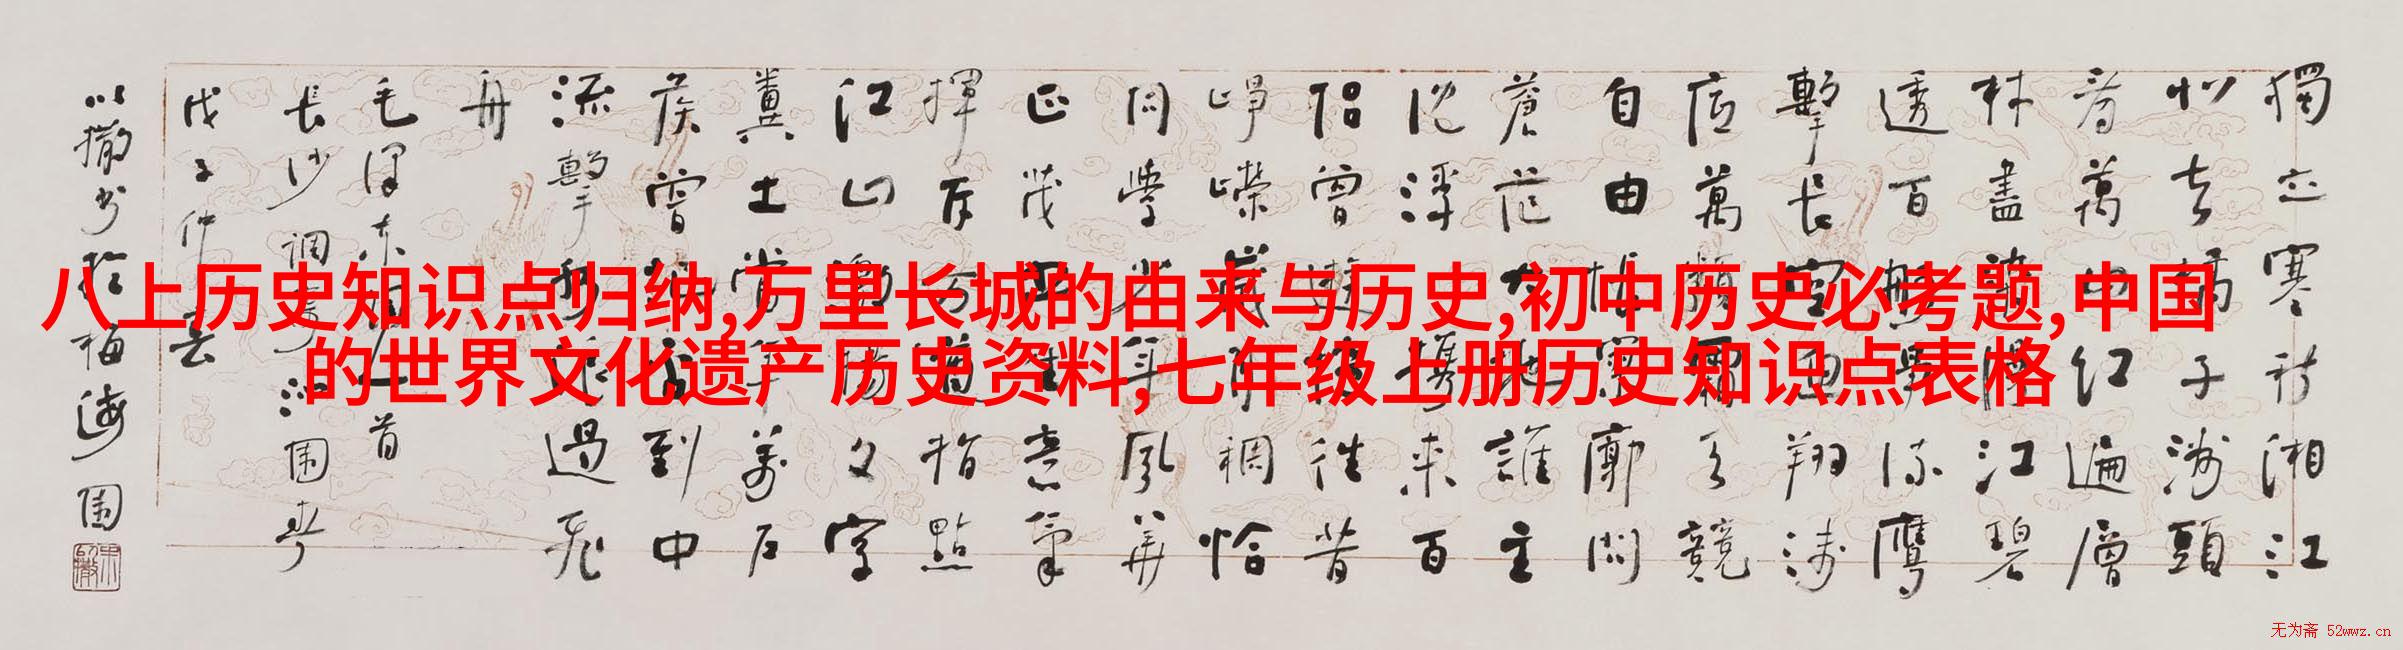 獨立寒秋湘江
北去橘子洲頭
看萬山红遍層
林盡染漫江碧
透百舸爭流鷹
擊長空魚翔淺
底萬類霜天競
自由悵寥廓問
蒼茫大地誰主
沈浮攜來百
侣曾遊憶往昔
崢嶸歲月稠恰
同學少年風華
正茂書生意氣
揮斥方遒指點
江山激揚文字
糞土當年萬戶
侯曾記否到中
流擊水浪遏飛
舟
毛澤東詞一首
長沙調寄沁園春
戊子仲春
以撒書於梅海園
八上历史知识点归纳,万里长城的由来与历史,初中历史必考题,中国
的世界文化遗产历史资料,七年级上册历史知识点表格
无为斋 52wwz.cn